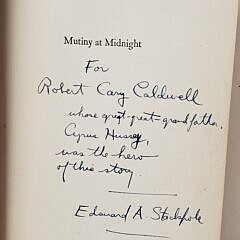 Mutiny at Midnight
For
Robert Cary Caldwell
whose great-great-grandfather,
Cyrus Hussey,
was the hero
of this story.
Edouard A. Stackpole